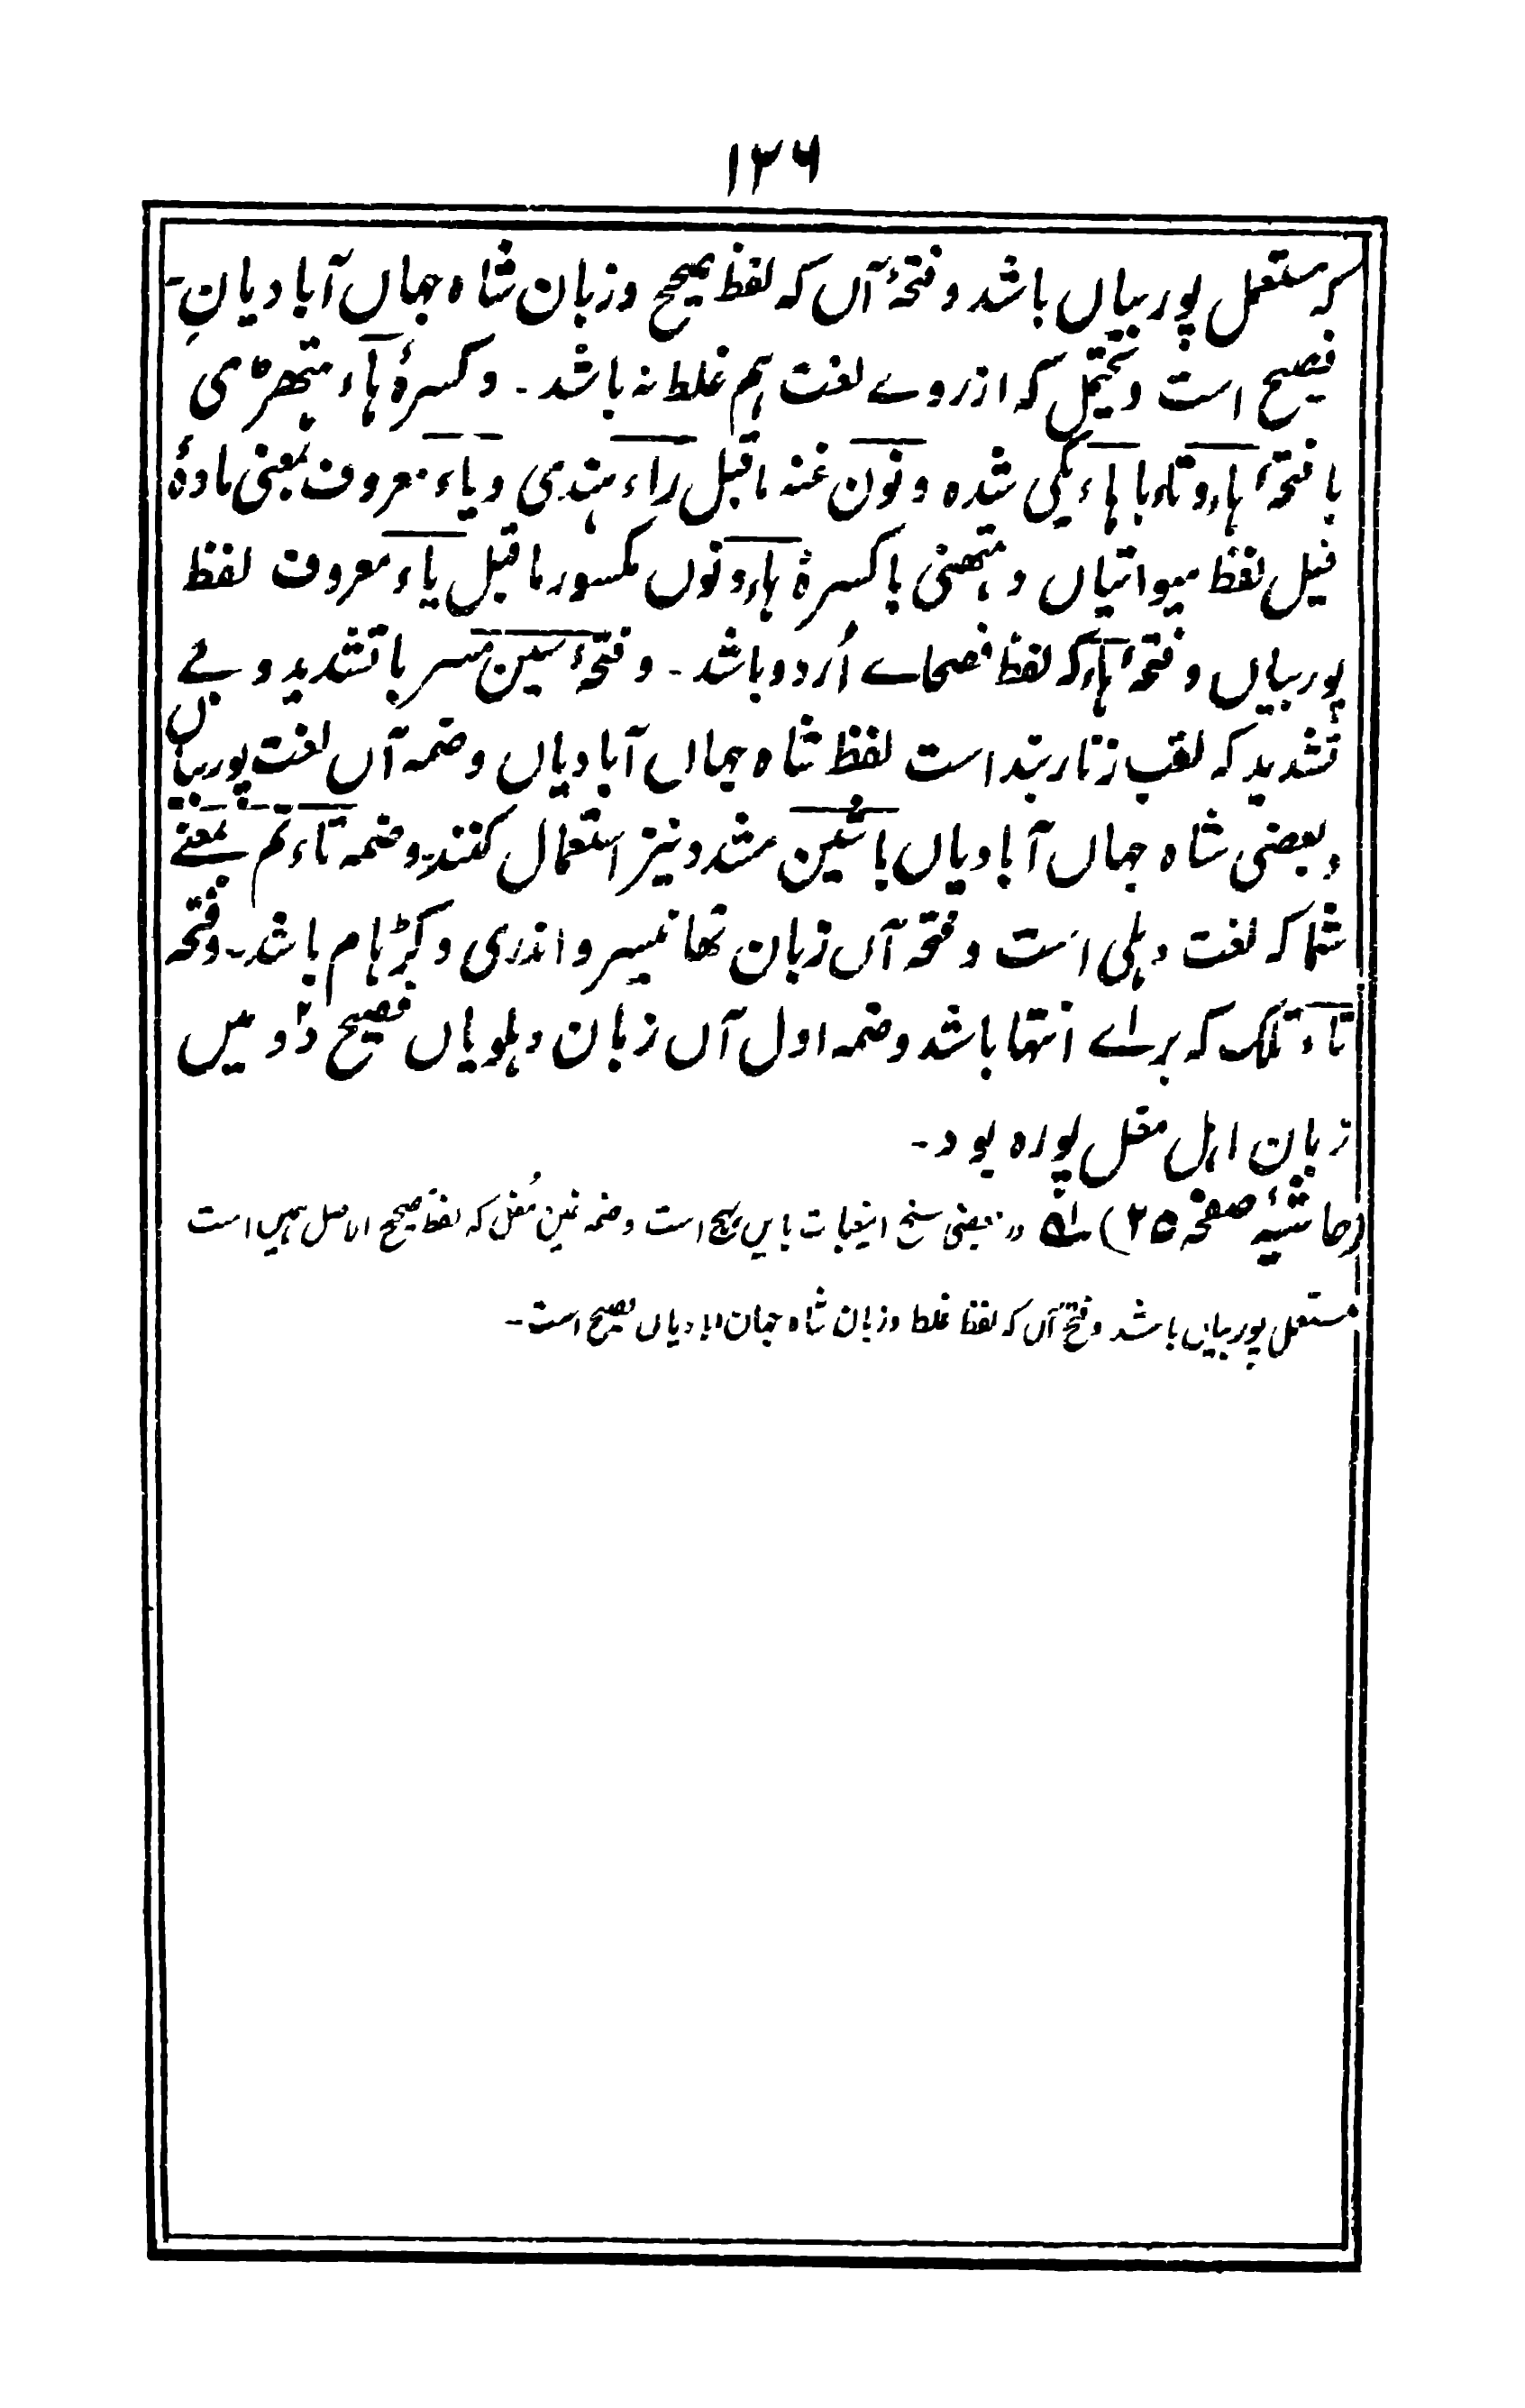 ۱۲۶
کہ مستعمل پوربیاں باشد و فتحۂ آں کہ لفظ صحیح و زبان شاہ جہاں آبادیانِ-
فصیح است و یحتمل کہ از روے لغت ہم غلط نہ باشد - و کسرۂ ہاء ہتھڑی
با فتحۂ ہا، و تاء با ہاء یکی شدہ و نون غنہ ماقبل راء ہندی و یاء معروف بمعنی مادۂ
فیل لفظ میواتیاں و ہتھنی با کسرۂ ہا، و نوں مکسور ماقبل یاء معروف لفظ
پوربیاں و فتحۂ ہاء کہ لفظ فصحاے اُردو باشد - و فتحۂ سین مسر با تشدید و بے
تشدید کہ لقب زنار بند است لفظ شاہ جہاں آبادیاں و ضمہ آں لغت پوربیاں
و بعضی شاہ جہاں آبادیاں با شین مشدد نیز استعمال کنند، و ضمہ تاء تم بمعنے
شما کہ لغت دہلی است و فتحہ آں زبان تھانیسر و اندری و کہڑہام باشد - و فتحہ
تاء تلک کہ براے انتہا باشد و ضمہ اول آں زبان دہلویاں فصیح و میں
زبان اہل مغل پورہ بود -
(حاشیۂ صفحہ ۲۵) لہ در بعضی نسخ اینعبارت بایں نہج است و ضمہ غین مُغل کہ لفظ صحیح الاصل ہمیں است
مستعمل پوربیاں باشد و فتحۂ آں کہ لفظ غلط و زبان شاہ جہان ابادیاں فصیح است -